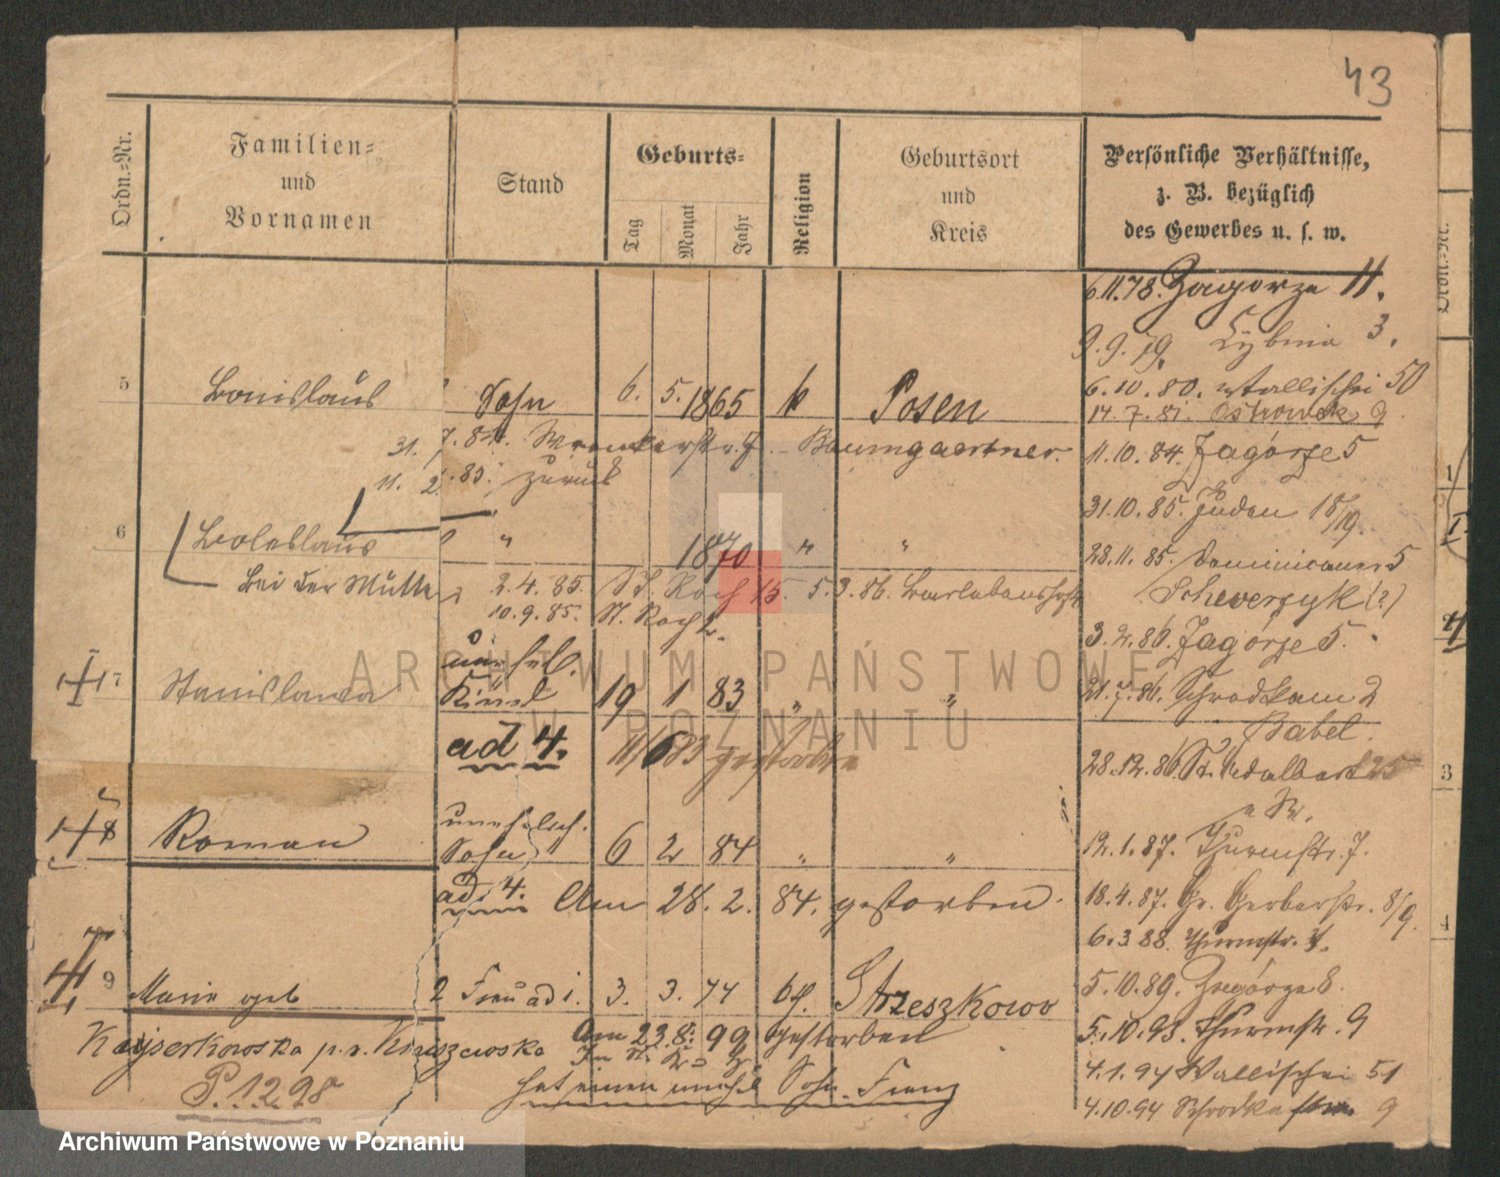 43
Ordn.-Nr.
Familien- und Vornamen
Stand
Geburts-
Tag
Monat
Jahr
Religion
Geburtsort und Kreis
Persönliche Verhältnisse, z. B. bezüglich des Gewerbes u. s. w.
6.11.78. Zagorze 11.
9.9.79. Cybina 3.
6.10.80. Wallischei 50
5 Bonislaus Sohn 6. 5. 1865 k Posen
14.7.81. Ostrowek 9
31. 7. 84. Wronkerstr. 7. - Baumgaertner.
11.10.84. Zagórze 5
11. 2. 85. zurück
31.10.85. Juden 18/19.
6 Boleslaus " 1870 " "
28.11.85. Dominicaner 5
Bei der Mutter 2.4.85. St. Roch 15. 5.3.86.
Scheverzyk (?)
10.9.85. St. Roch 2.
3.2.86. Zagórze 5.
unehel.
7 Stanislawa Kind 19 1 83 " "
21.7.86. Schrodkam 2
Babel.
ad 4. 11/6 83 gestorben
28.12.86. St. Adalbert 25
12.1.87. Thurmstr. 7.
unehelich.
8 Roman Sohn 6 2 84 " "
ad. 4. Am 28. 2. 84. gestorben.
18.4.87. Gr. Gerberstr. 8/9.
6.3.88. Thurmstr. 7.
9 Marie geb 2 Frau ad 1. 3. 3. 44 kth. Strzeszkowo
5.10.89. Zagórze 8.
Kayserkowska p. v. Kruszewska Am 23.8. 99 gestorben
5.10.93. Thurmstr. 9
4.1.94 Wallischei 51
P. 1298
hat einen unehel Sohn Franz
4.10.94 Schrodka 9
Ordn.-Nr.
1
3
4
ARCHIWUM PAŃSTWOWE
W POZNANIU
Archiwum Państwowe w Poznaniu